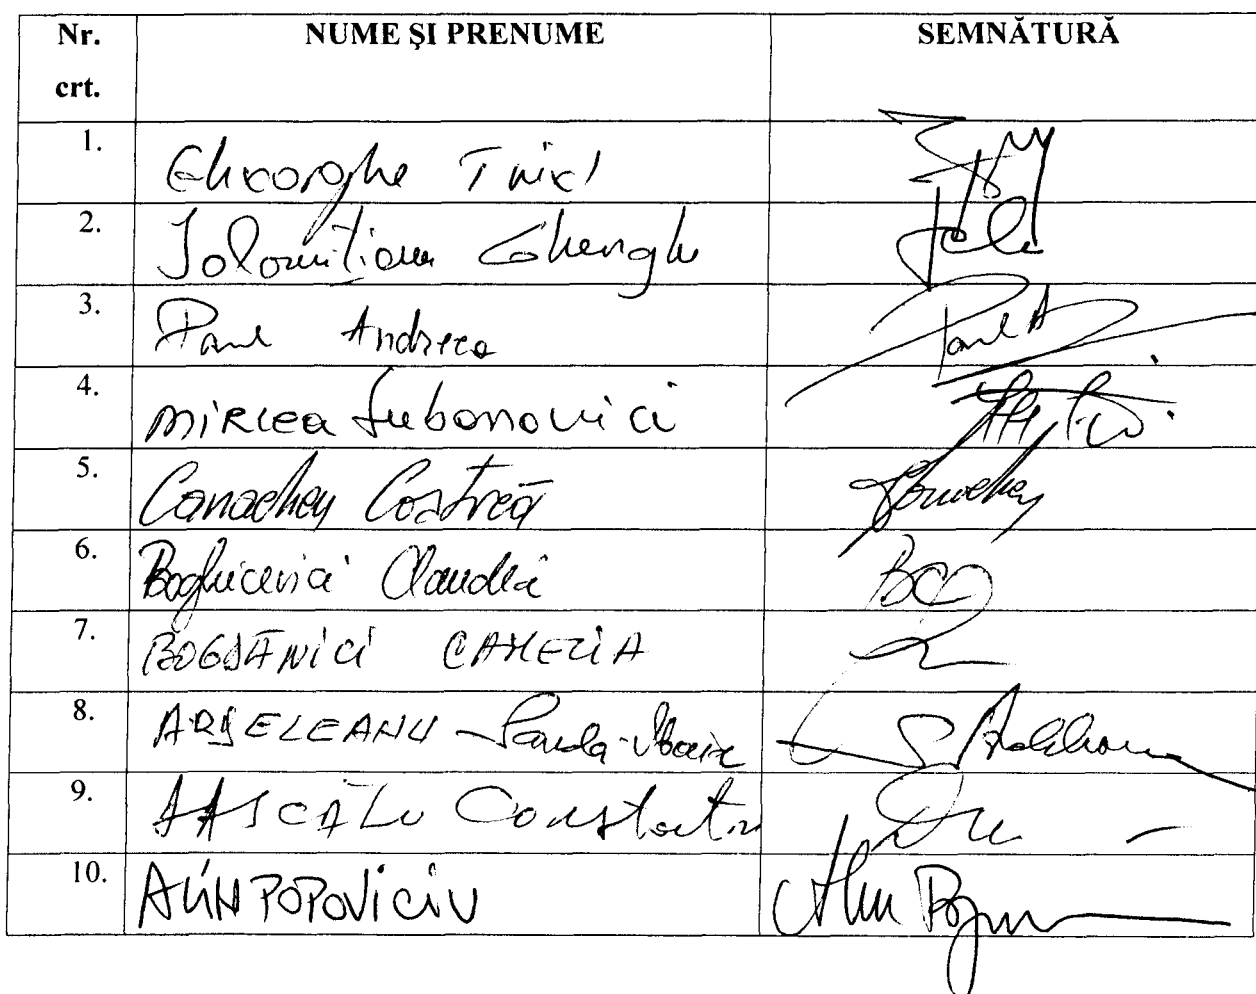 Nr. crt. NUME ŞI PRENUME SEMNĂTURĂ
1. Gheorghe Tinel
2. Ialomiţianu Gheorghe
3. Paul Andreea
4. MIRCEA Lubanovici
5. Canacheu Costică
6. Boghicevici Claudia
7. BOGDĂNICI CAMELIA
8. ARDELEANU Sanda-Maria
9. DASCĂLU Constantin
10. ALIN POPOVICIU